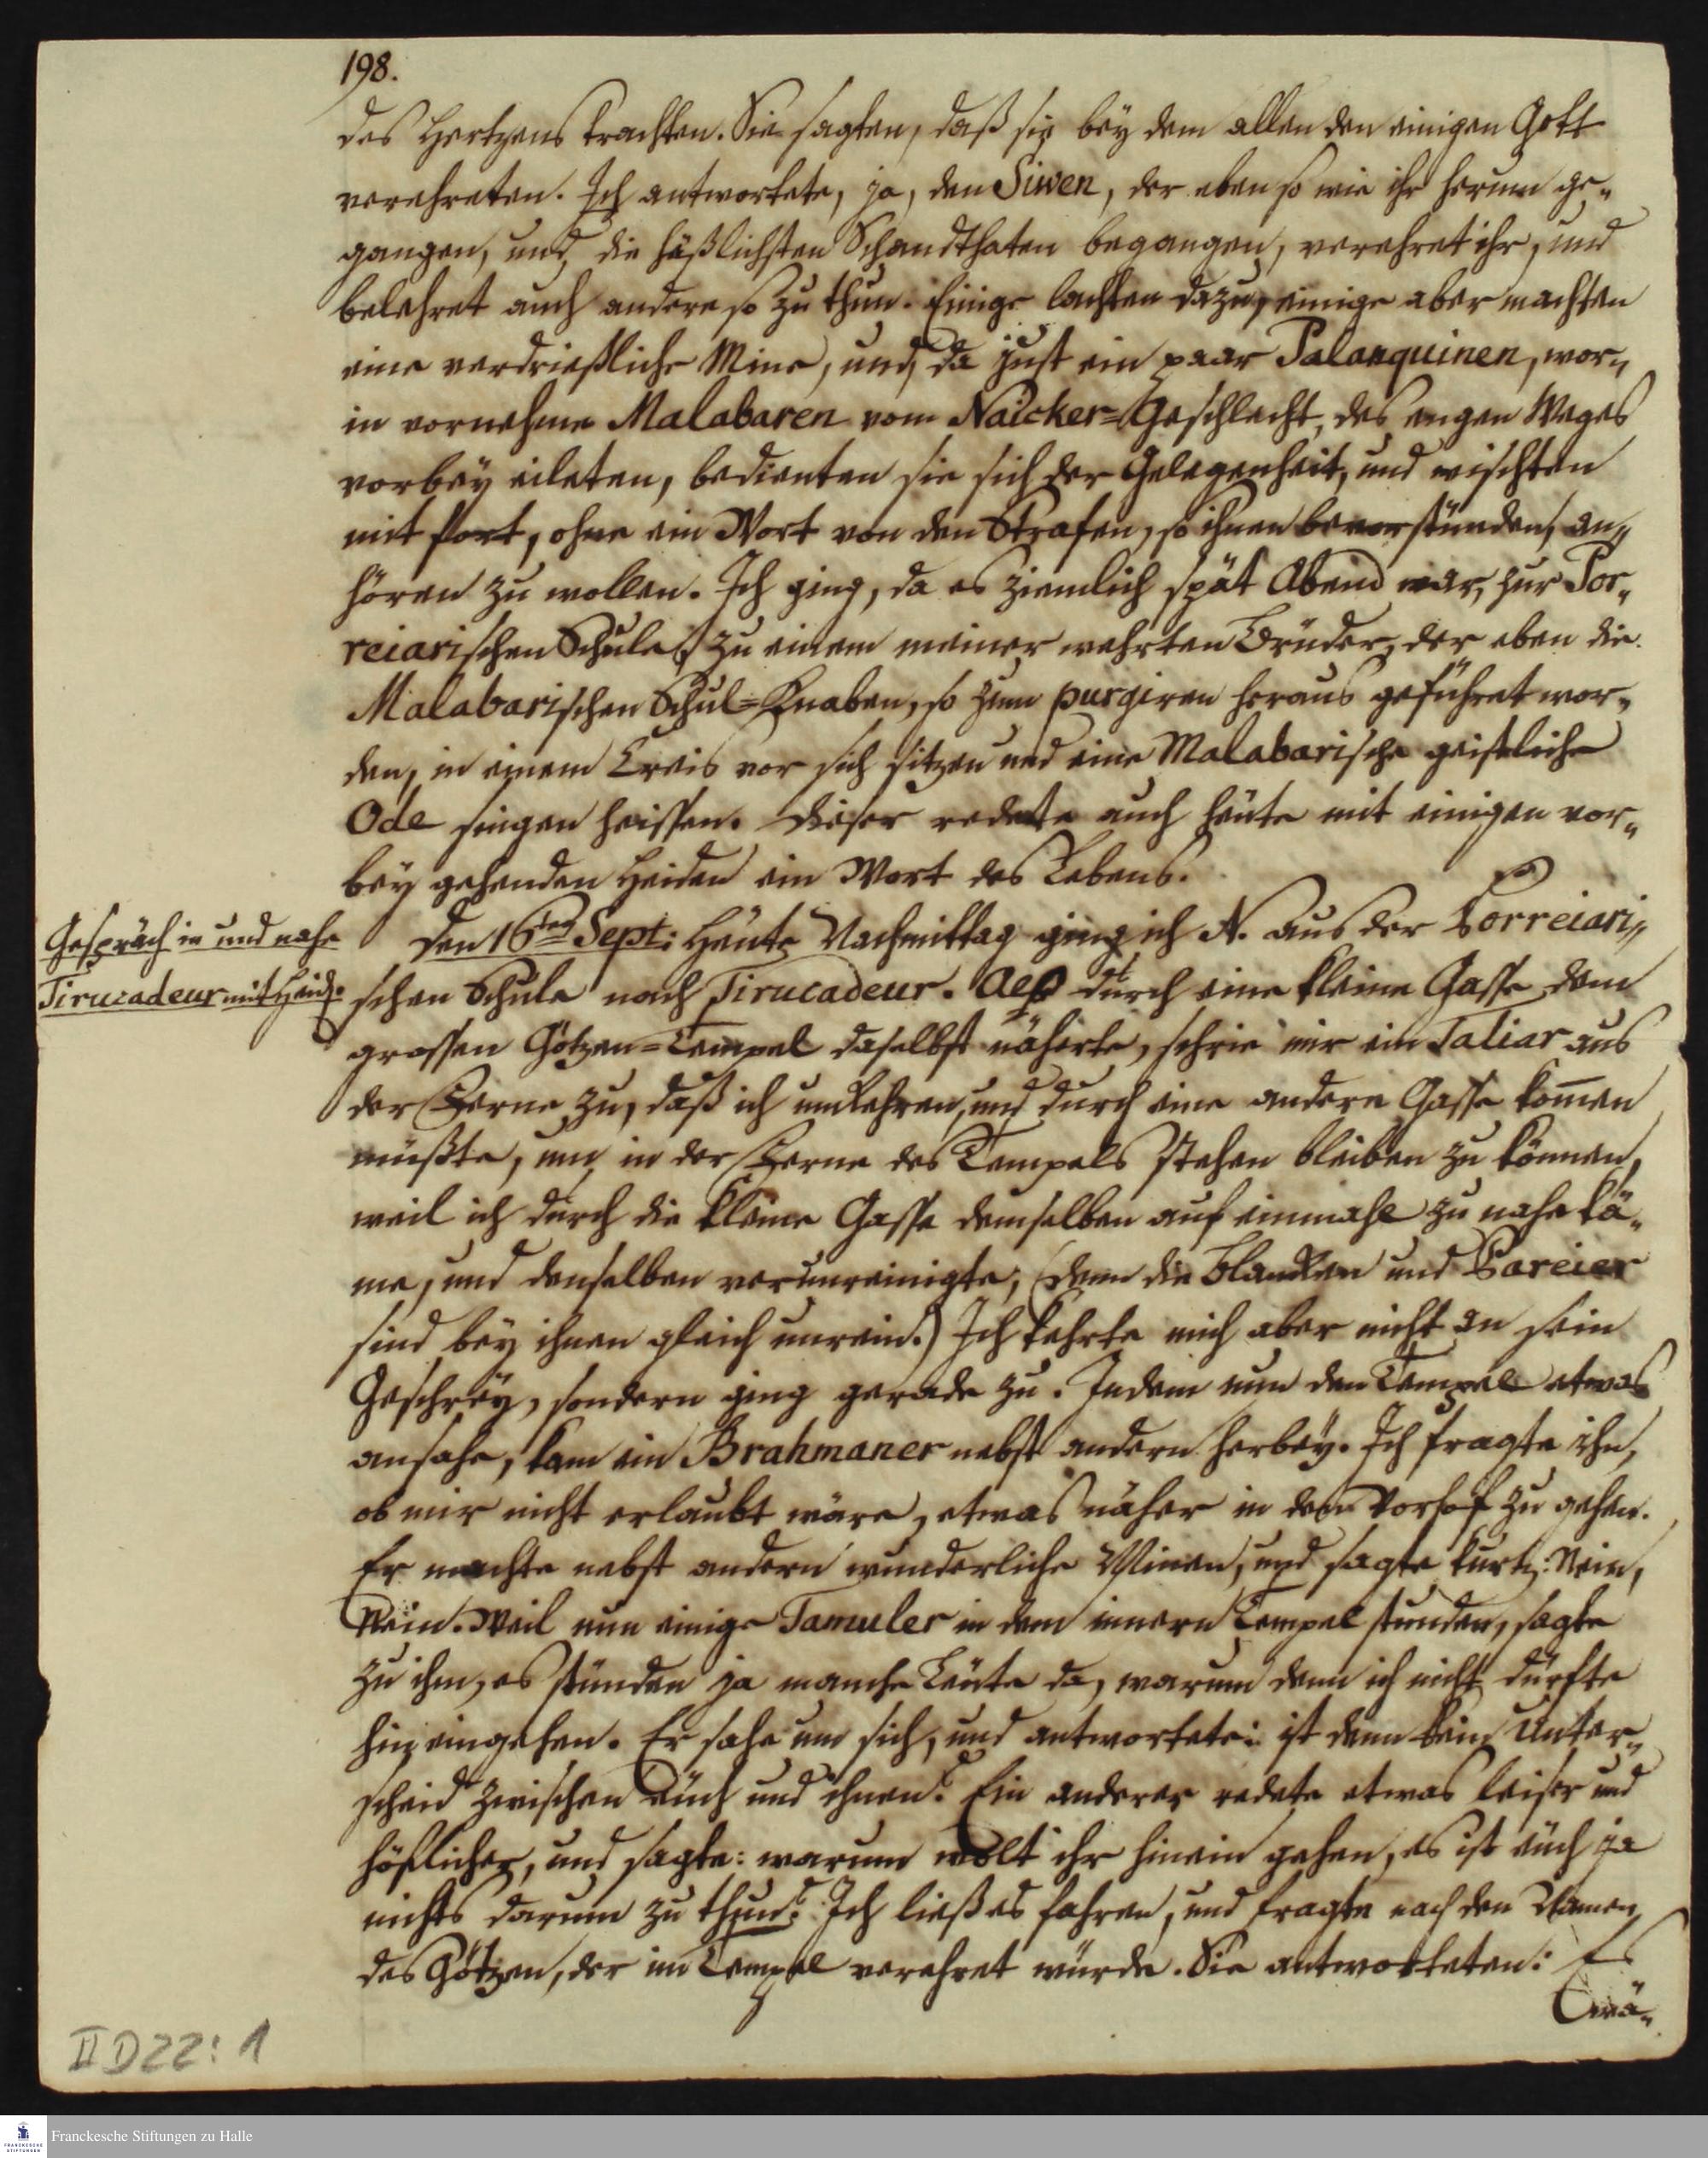 198.
des Hertzens trachten. Sie sagten, daß sie bey dem allen den einigen Gott
verehreten. Ich antwortete, ja, den Siwen, der eben so wie ihr herum ge„
gangen, und die häßlichsten Schandthaten begangen, verehret ihr, und
belehret auch andere so zu thun. Einige lachten dazu, einige aber machten
eine verdrießliche Mine, und da just ein paar Palanquinen, wor„
in vornehme Malabaren vom Naicker=Geschlecht, des engen Weges
vorbey eileten, bedienten sie sich der Gelegenheit, und wischten
mit fort, ohne ein Wort von den Strafen, so ihnen bevorstünden, an„
hören zu wollen. Ich ging, da es ziemlich spät Abend war, zur Por„
reiarischen Schule, zu einem meiner wehrten Brüder, der eben die
Malabarischen Schul=Knaben, so zum purgiren heraus geführet wor„
den, in einem Creis vor sich sitzen und eine Malabarische geistliche
Ode singen heissen. Dieser redete auch heute mit einigen vor„
bey gehenden Heiden ein Wort des Lebens.
Gespräch in und nahe
Tirucadeur mit Heid.
Den 16ten Sept: Heute Nachmittag ging ich N. aus der Porreiari„
schen Schule nach Tirucadeur. Als durch eine kleine Gasse dem
grossen Götzen=Tempel daselbst näherte, schrie mir ein Taliar aus
der Ferne zu, daß ich umkehren, und durch eine andere Gasse kom̄en
müßte, um in der Ferne des Tempels stehen bleiben zu können,
weil ich durch die kleine Gasse demselben auf einmahl zu nahe kä„
me, und denselben verunreinigte, (denn die Blancken und Pareier
sind bey ihnen gleich unrein.) Ich kehrte mich aber nicht an sein
Geschrey, sondern ging gerade zu. Indem nun den Tempel etwas
ansahe, kam ein Brahmaner nebst andern herbey. Ich fragte ihn,
ob mir nicht erlaubt wäre, etwas näher in den Vorhof zu gehen.
Er machte nebst andern wunderliche Minen, und sagte kurtz: Nein,
Nein. Weil nun einige Tamuler in dem innern Tempel stunden, sagte
zu ihm, es stünden ja manche Leute da, warum denn ich nicht dürfte
hineingehen. Er sahe um sich, und antwortete: ist denn kein Unter„
scheid zwischen euch und ihnen? Ein anderer redete etwas leiser und
höflicher, und sagte: warum wolt ihr hinein gehen, es ist euch ja
nichts darum zu thun? Ich ließ es fahren, und fragte nach den Namen
des Götzen, der im Tempel verehret würde. Sie antworteten: Es
wä„
II D22: 1
FRANCKESCHE STIFTUNGEN
Franckesche Stiftungen zu Halle